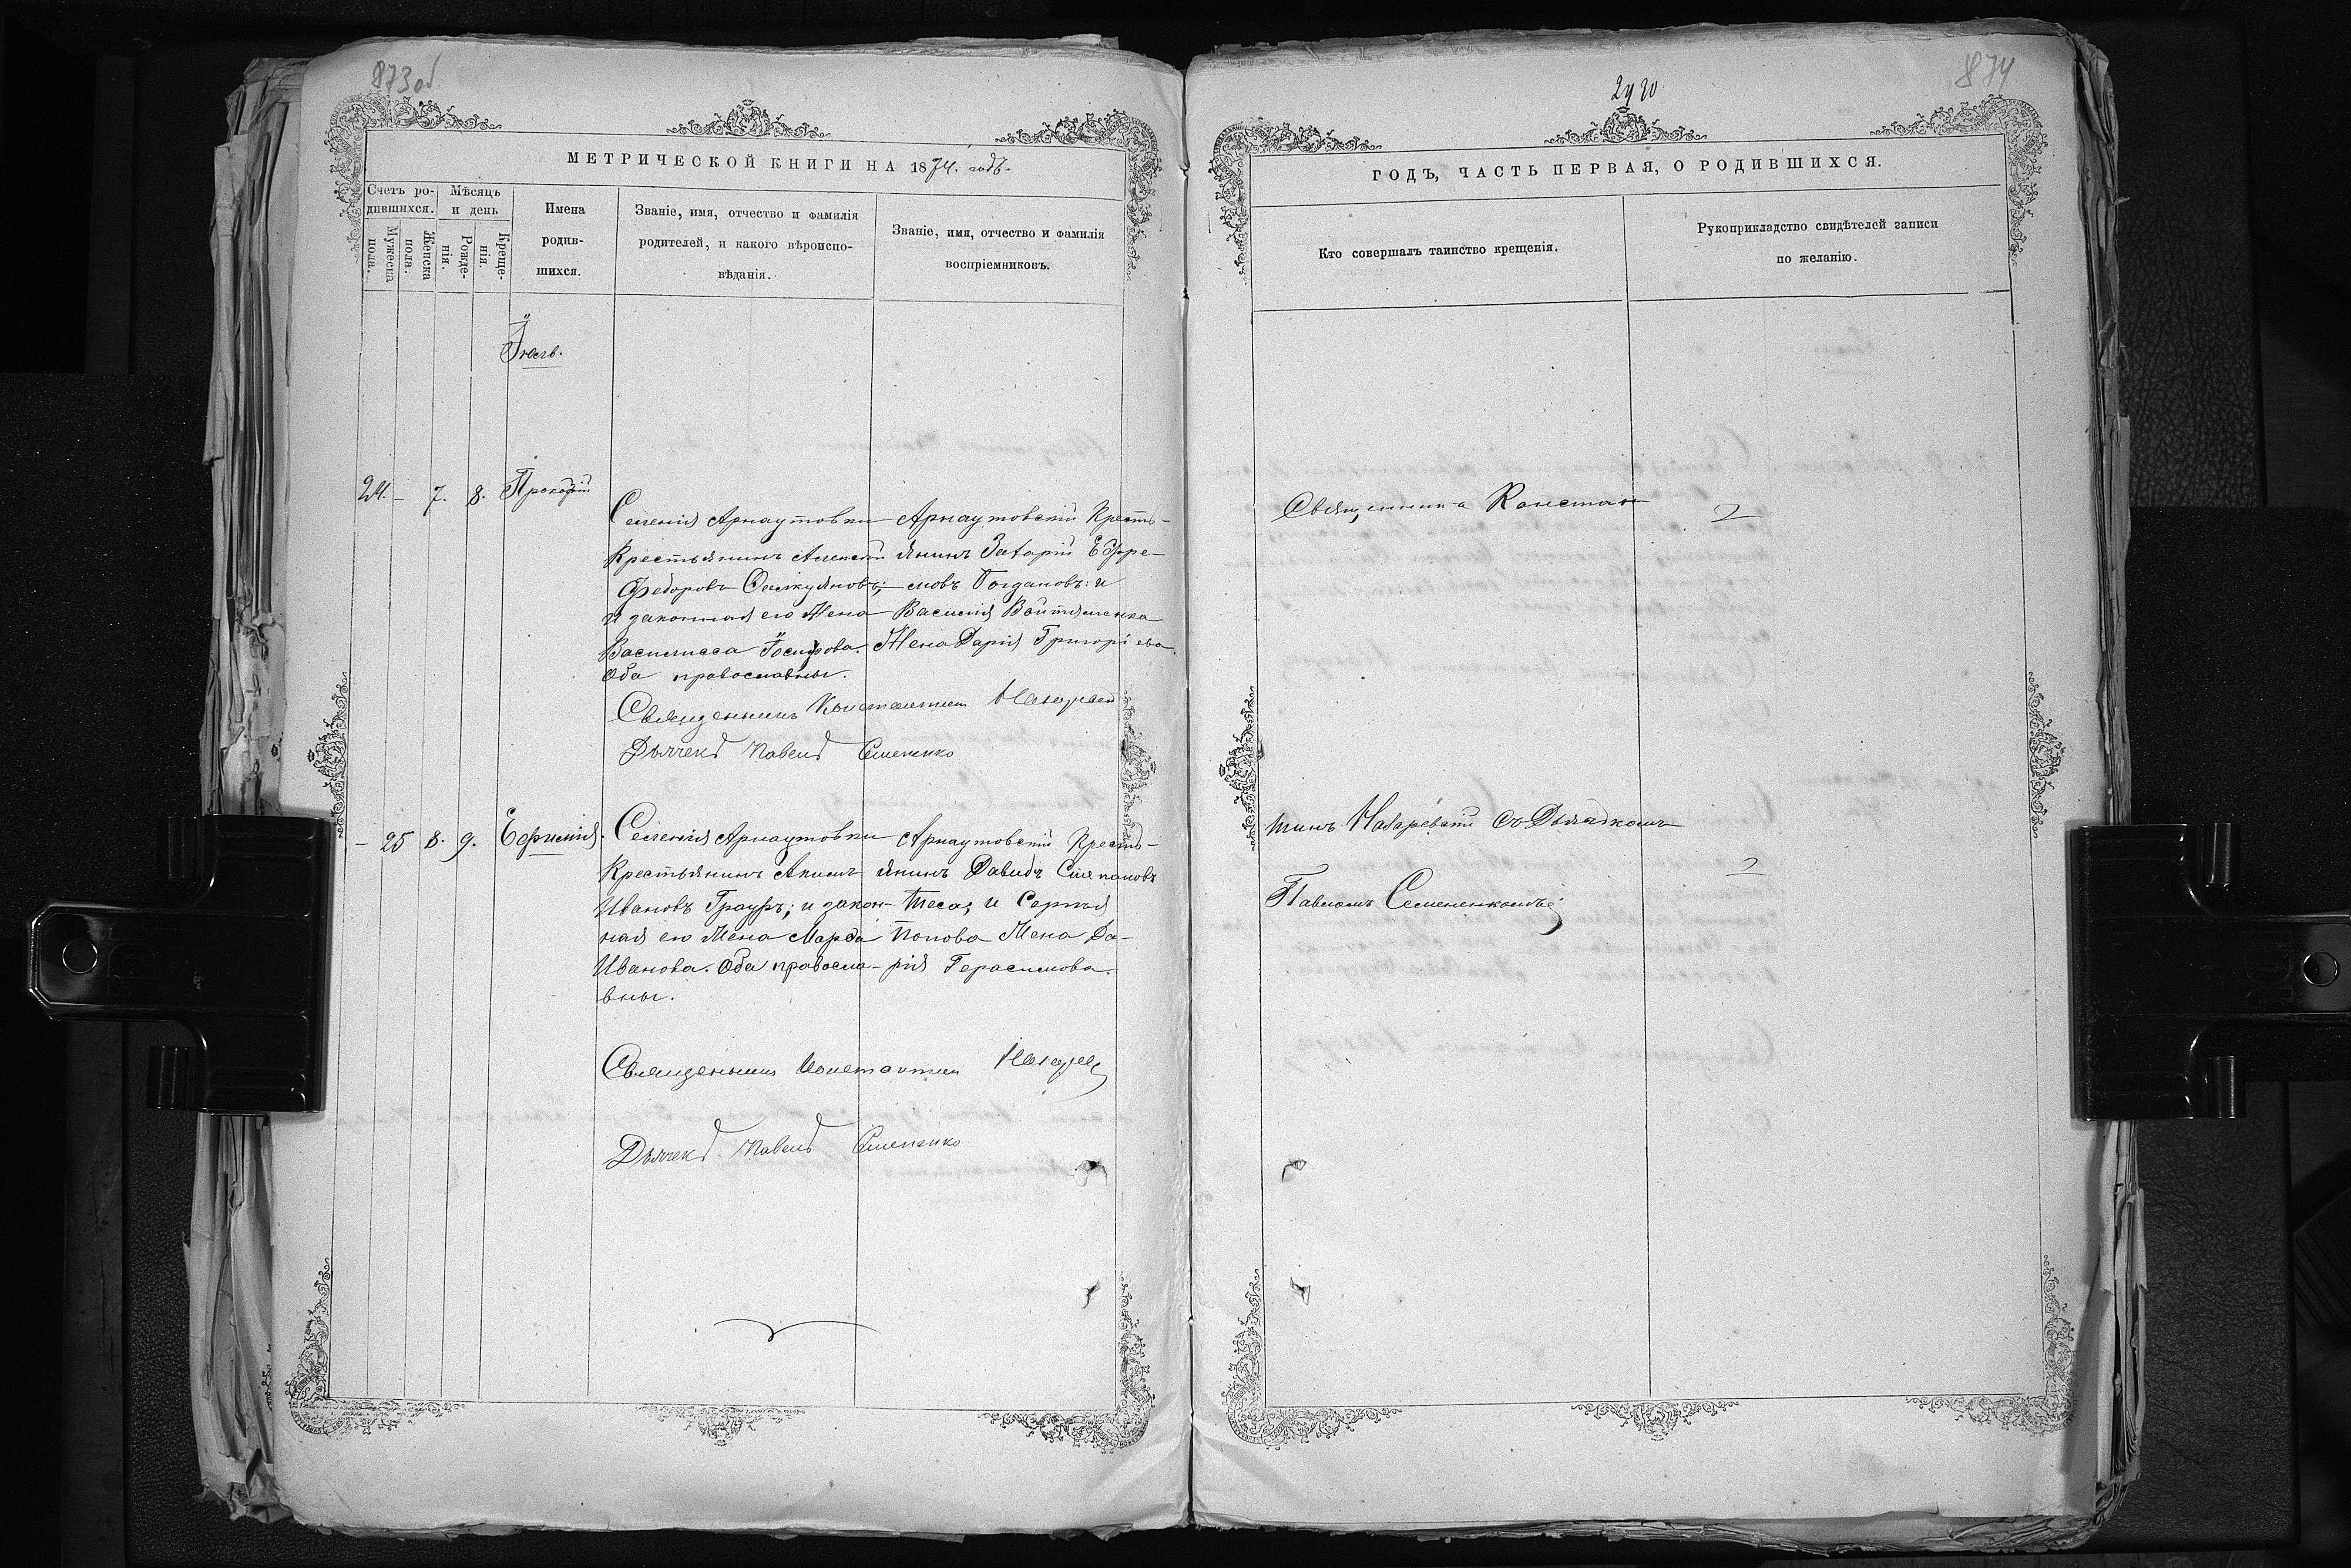 873 об
МЕТРИЧЕСКОЙ КНИГИ НА 1874. годъ.
Счетъ ро-
дившихся.
Мужеска
пола.
Женска
пола.
Мѣсяцъ
и день
Рожде-
нія.
Креще-
нія.
Имена
родив-
шихся.
Званіе, имя, отчество и фамилія
родителей, и какого вѣроиспо-
вѣданія.
Званіе, имя, отчество и фамилія
воспріемниковъ.
Іюль.
24. – 7. 8. Прокофій
Селенія Арнаутовки
Крестьянинъ Алексѣй
Федоровъ
и законная его Жена
Василисса Іосифова.
Оба православны.
Арнаутовскій Кресть-
янинъ Захарій Ефре-
мовъ Богдановъ: и
Василія Войтяменка
Жена Дарія Григоріева.
Священникъ Константинъ
Дьячекъ Павелъ Семененко
– 25 8. 9. Ефимія.
Селенія Арнаутовки
Крестьянинъ Акимъ
Ивановъ Грауръ; и закон-
ная его Жена Марфа
Иванова. Оба правосла-
вны.
Арнаутовскій Кресть-
янинъ Давидъ Степановъ
Теса; и Сергѣя
Попова Жена Да-
рія Герасимова.
Священникъ Константинъ
Дьячекъ Павелъ Семененко
2920
874
ГОДЪ, ЧАСТЬ ПЕРВАЯ, О РОДИВШИХСЯ.
Кто совершалъ таинство крещенія.
Рукоприкладство свидѣтелей записи
по желанію.
Священника Констан
тинъ Назаревскій съ Дьячкомъ
Павломъ Семененкомъ